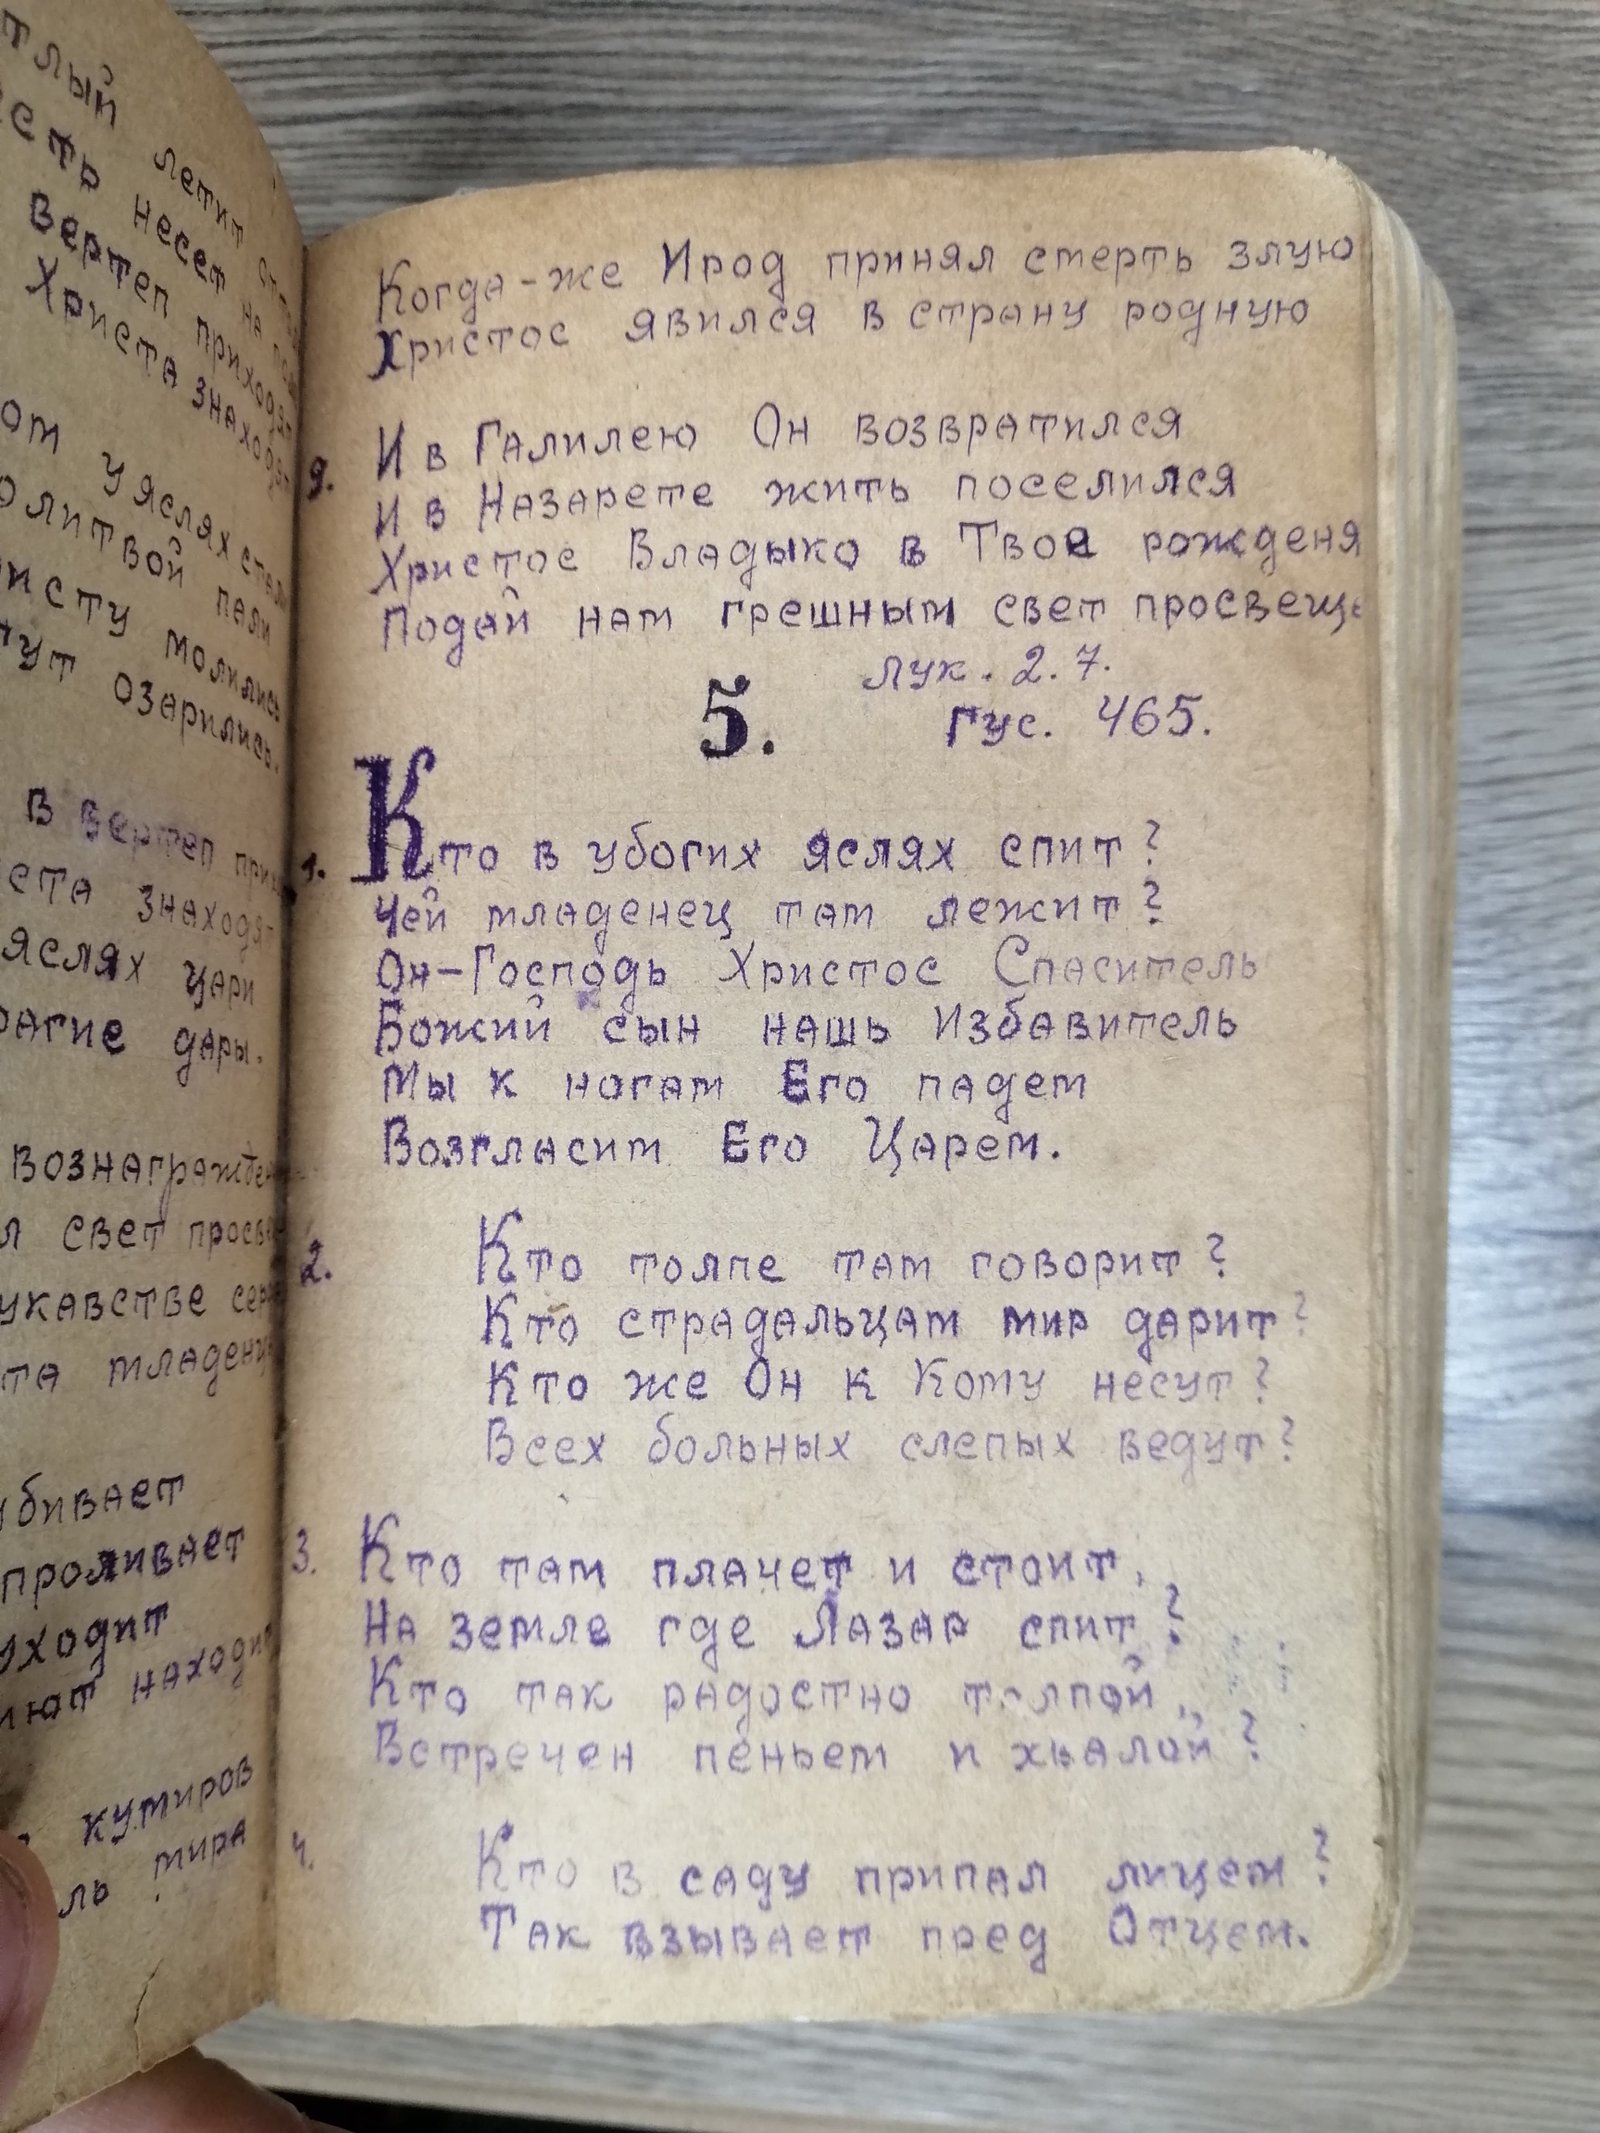 тлый летит
есть несет на
Вертеп приходят
Христа знаходят
ом у яслях стали
олитвой пали
исту молились
нут озарились.
В вертеп
ста знаходят
яслях цари
рагие дары.
вознагражден
л свет просв
укавстве сер
та младенц
убивает
проливает
иходит
ают находит
кумиров
ль мира
Когда-же Ирод принял смерть злую
Христос явился в страну родную
9. И в Галилею Он возвратился
И в Назарете жить поселился
Христос Владыко в Твое рожденя
Подай нам грешным свет просвеще
Лук. 2. 7.
5. Гус. 465.
1. Кто в убогих яслях спит?
Чей младенец там лежит?
Он-Господь Христос Спаситель
Божий сын нашь Избавитель
Мы к ногам Его падем
Возгласим Его Царем.
2. Кто толпе там говорит?
Кто страдальцам мир дарит?
Кто же Он к Кому несут?
Всех больных слепых ведут?
3. Кто там плачет и стоит,
На земле где Лазар спит?
Кто так радостно толпой,
Встречен пеньем и хвалой?
4. Кто в саду припал лицем?
Так взывает пред Отцем.